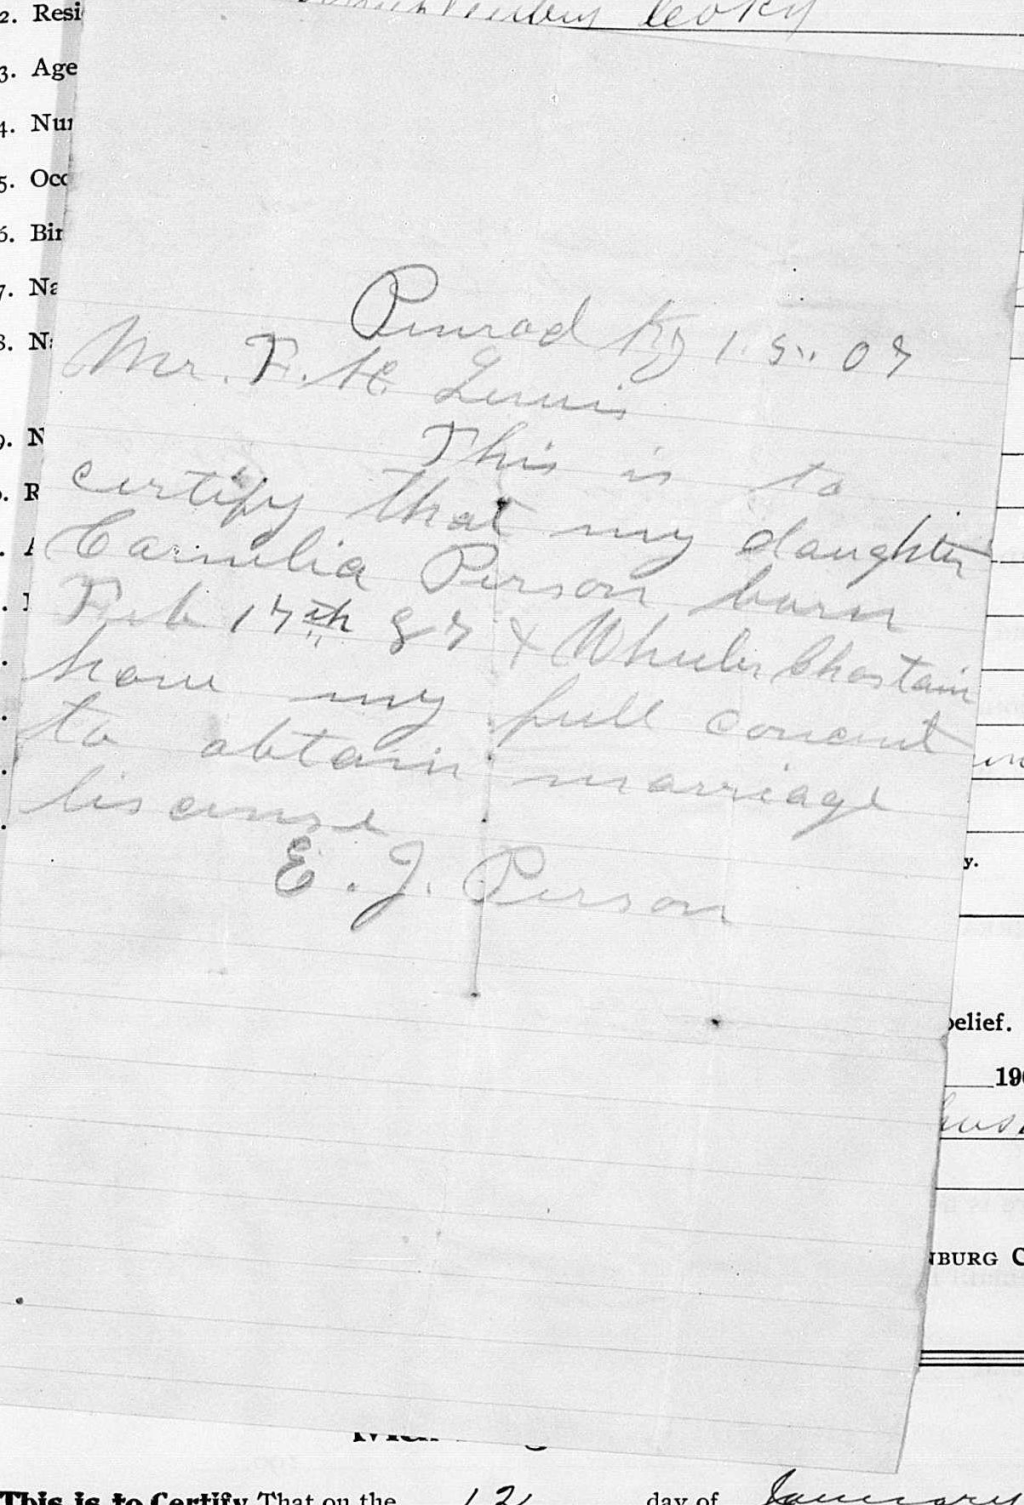 2. Resi
leoky
3. Age
4. Nu
5. Occ
6. Bir
7. Na
8. Na
Penrod Ky 1. 5.. 07
Mr. T. H Lewis
9. N
This is to
R
certify that my daughter
Carnelia Person born
Feb 17th 87 & Wheeler Chastain
have my full concent
to obtain marriage
liscense
E. J. Person
y.
belief.
190
NBURG C
This is to Certify That on the 12 day of January